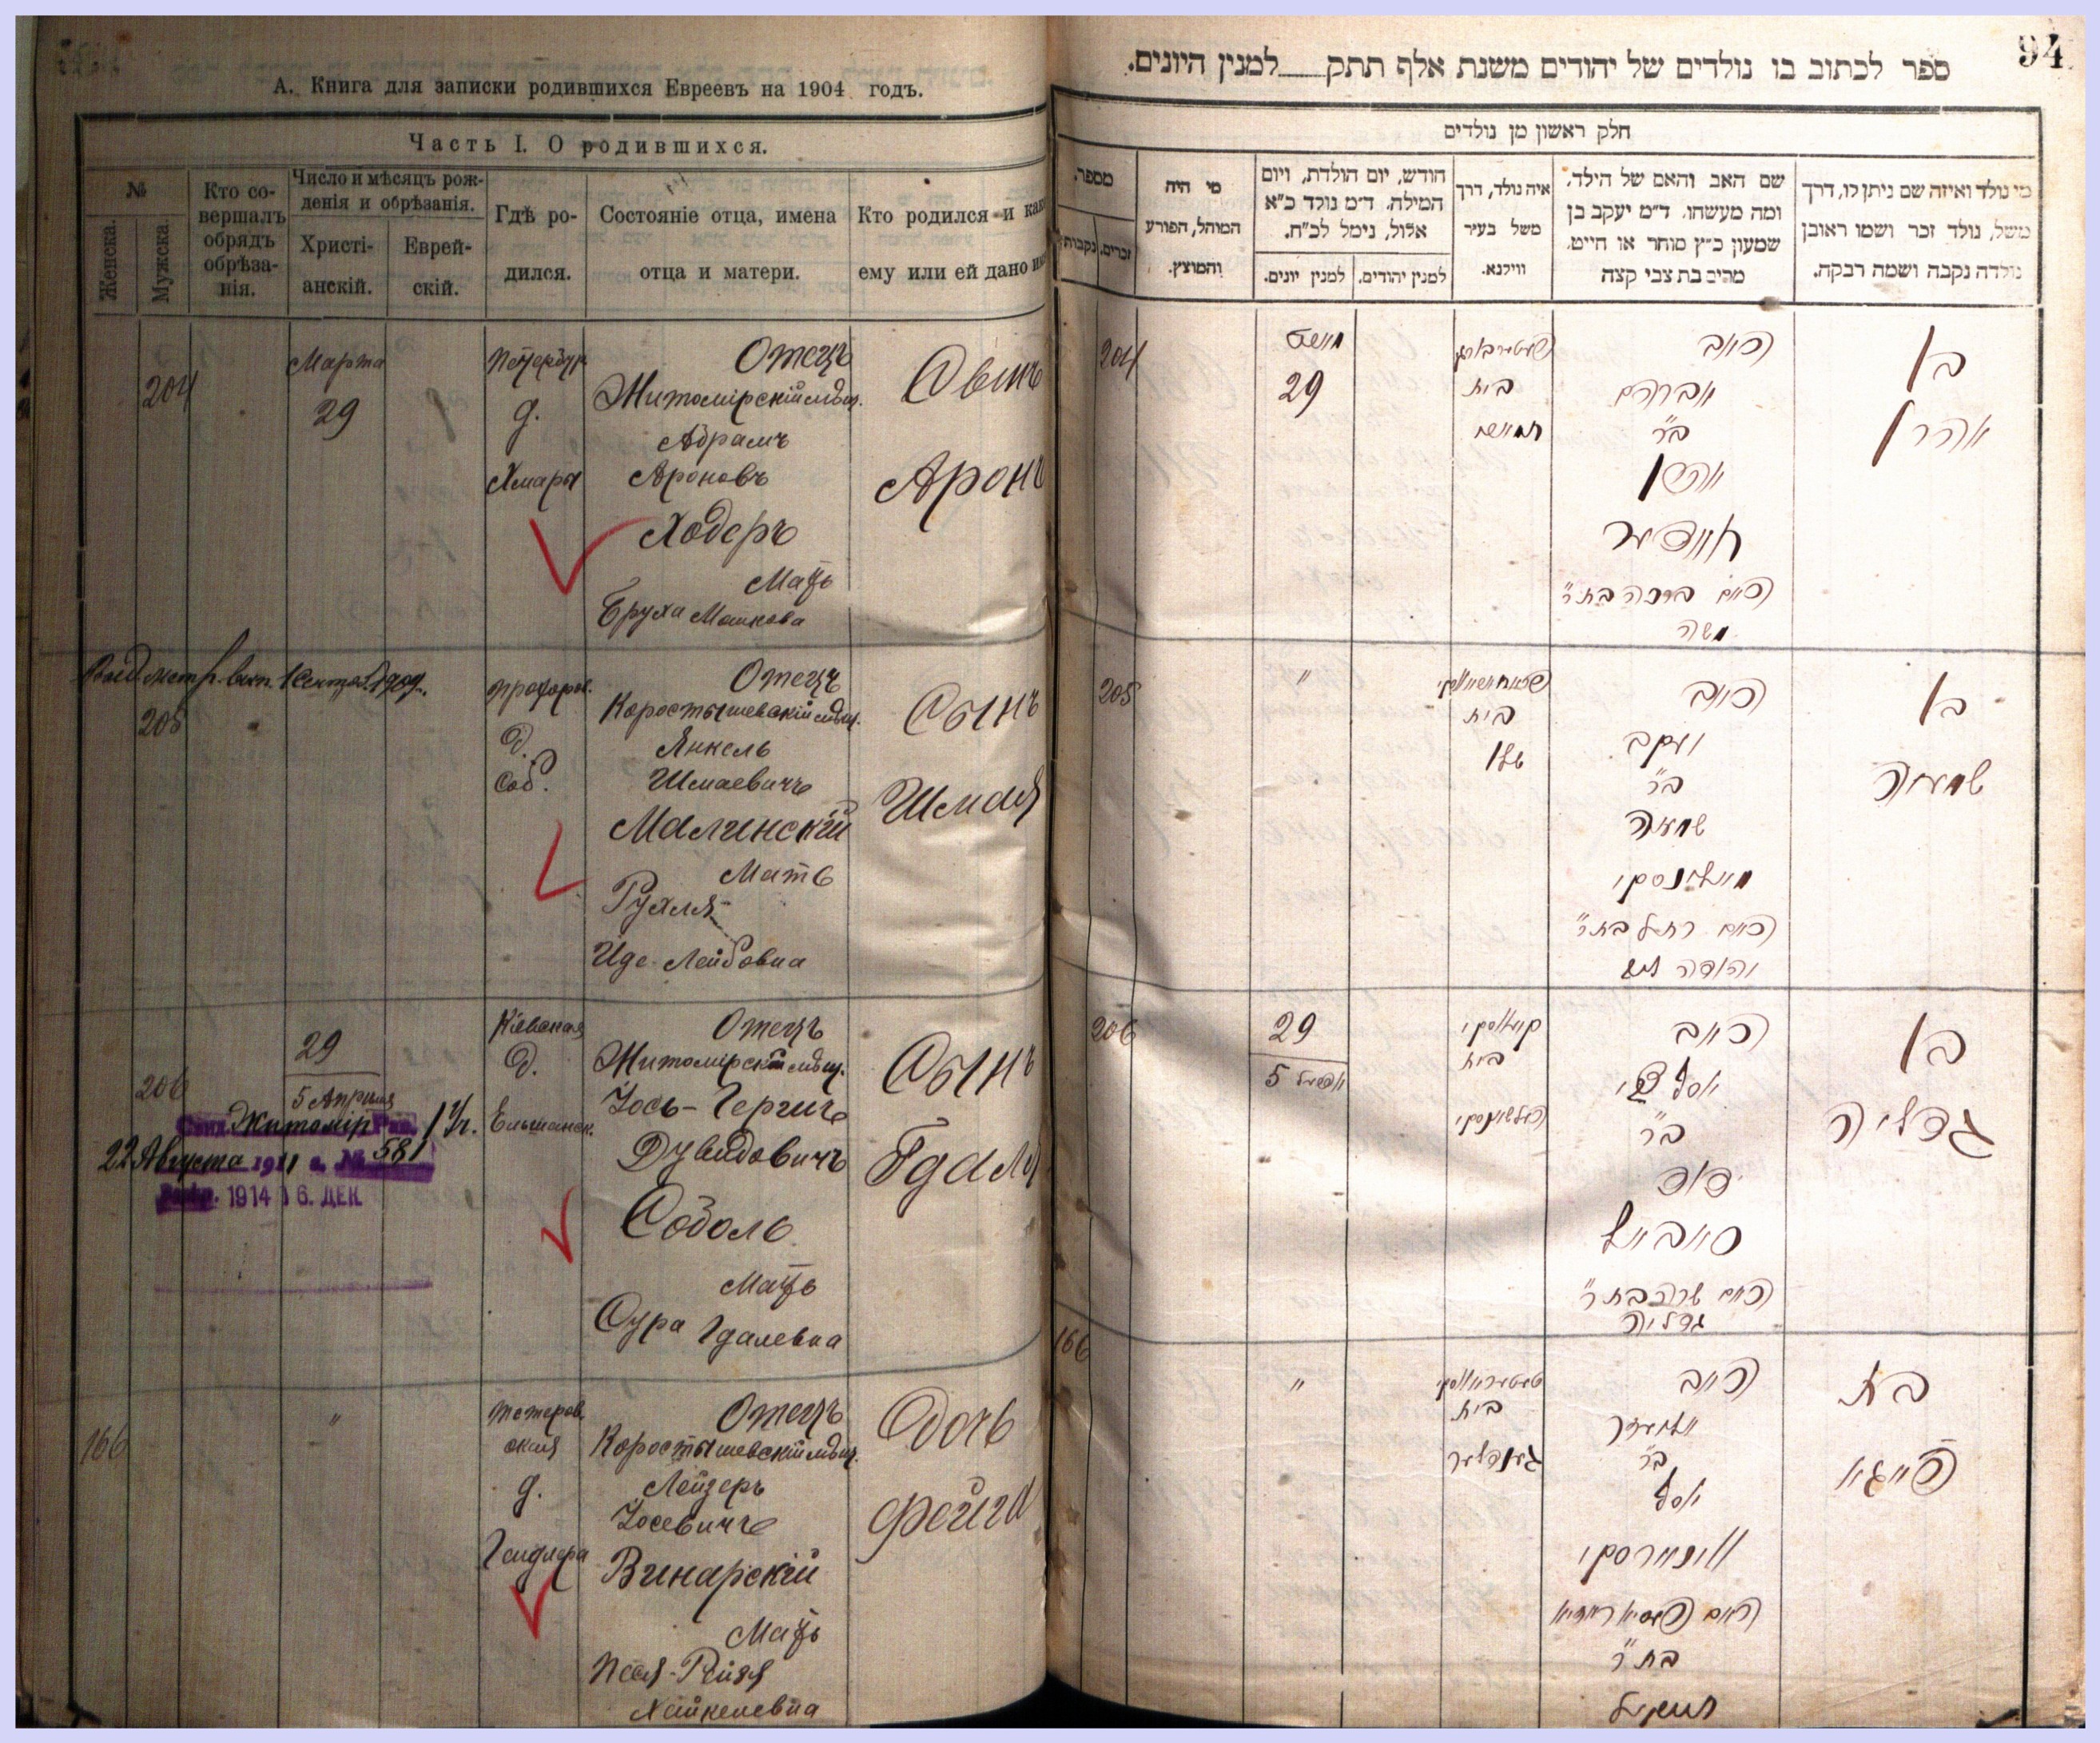 А. Книга для записки родившихся Евреевъ на 1904 годъ.
Часть I. О родившихся.
№
Женска.
Мужска.
Кто со-
вершалъ
обрядъ
обрѣза-
нія.
Число и мѣсяцъ рож-
денія и обрѣзанія.
Христі-
анскій.
Еврей-
скій.
Гдѣ ро-
дился.
Состояніе отца, имена
отца и матери.
Кто родился и как
ему или ей дано им
204
Марта
29
д.
Хмары
Отецъ
Житомірскій мѣщ.
Абрамъ
Ароновъ
Ходеръ
Мать
Бруха Мошкова
Сынъ
Аронъ
205
д.
Соб.
Отецъ
Коростышевскій мѣщ.
Янкель
Шмаевичъ
Малинскій
Мать
Рухля-
Иде-Лейбовна
Сынъ
Шмая
206
29
5 Апрѣля
Житомір
22 Августа 1911 г. № 581
1914 16. ДЕК.
Кіевская
д.
Отецъ
Житомірскій мѣщ.
Іось-Гершъ
Дувидовичъ
Соболь
Мать
Сура Гдалевна
Сынъ
Гдаля
166
"
Тетерев-
ская
д.
Гендлера
Отецъ
Коростышевскій мѣщ.
Лейзеръ
Іосевичъ
Винарскій
Мать
Песя-Рейзя
Хаикелевна
Дочь
Фейга
94
ספר לכתוב בו נולדים של יהודים משנת אלף תתק למנין היונים.
חלק ראשון מן נולדים
מי נולד ואיזה שם ניתן לו, דרך
משל, נולד זכר ושמו ראובן
נולדה נקבה ושמה רבקה.
שם האב והאם של הילד,
ומה מעשהו. ד״מ יעקב בן
שמעון כ״ץ סוחר או חייט,
מרים בת צבי קצה
איה נולד, דרך
משל בעיר
ווילנא.
חודש, יום הולדת, ויום
המילה. ד״מ נולד כ״א
אלול, נימל לכ״ח.
למנין יהודים.
למנין יונים.
מי היה
המוהל, הפורע
והמוצץ.
מספר.
זכרים.
נקבות.
בן
אהרן
האב
אברהם
ב״ר
אהרן
האם ברכה בת ר״
משה
בית
29
204
בן
שמעיה
האב
יעקב
ב״ר
שמעיה
מאלינסקי
האם רחל בת ר״
בית
"
205
בן
גדליה
האב
ב״ר
דוד
סאבאל
האם שרה בת ר״
גדליה
בית
29
5 אפריל
206
בת
פייגא
האב
ב״ר
יוסף
ווינארסקי
בת ר״
בית
גענדלער
"
166